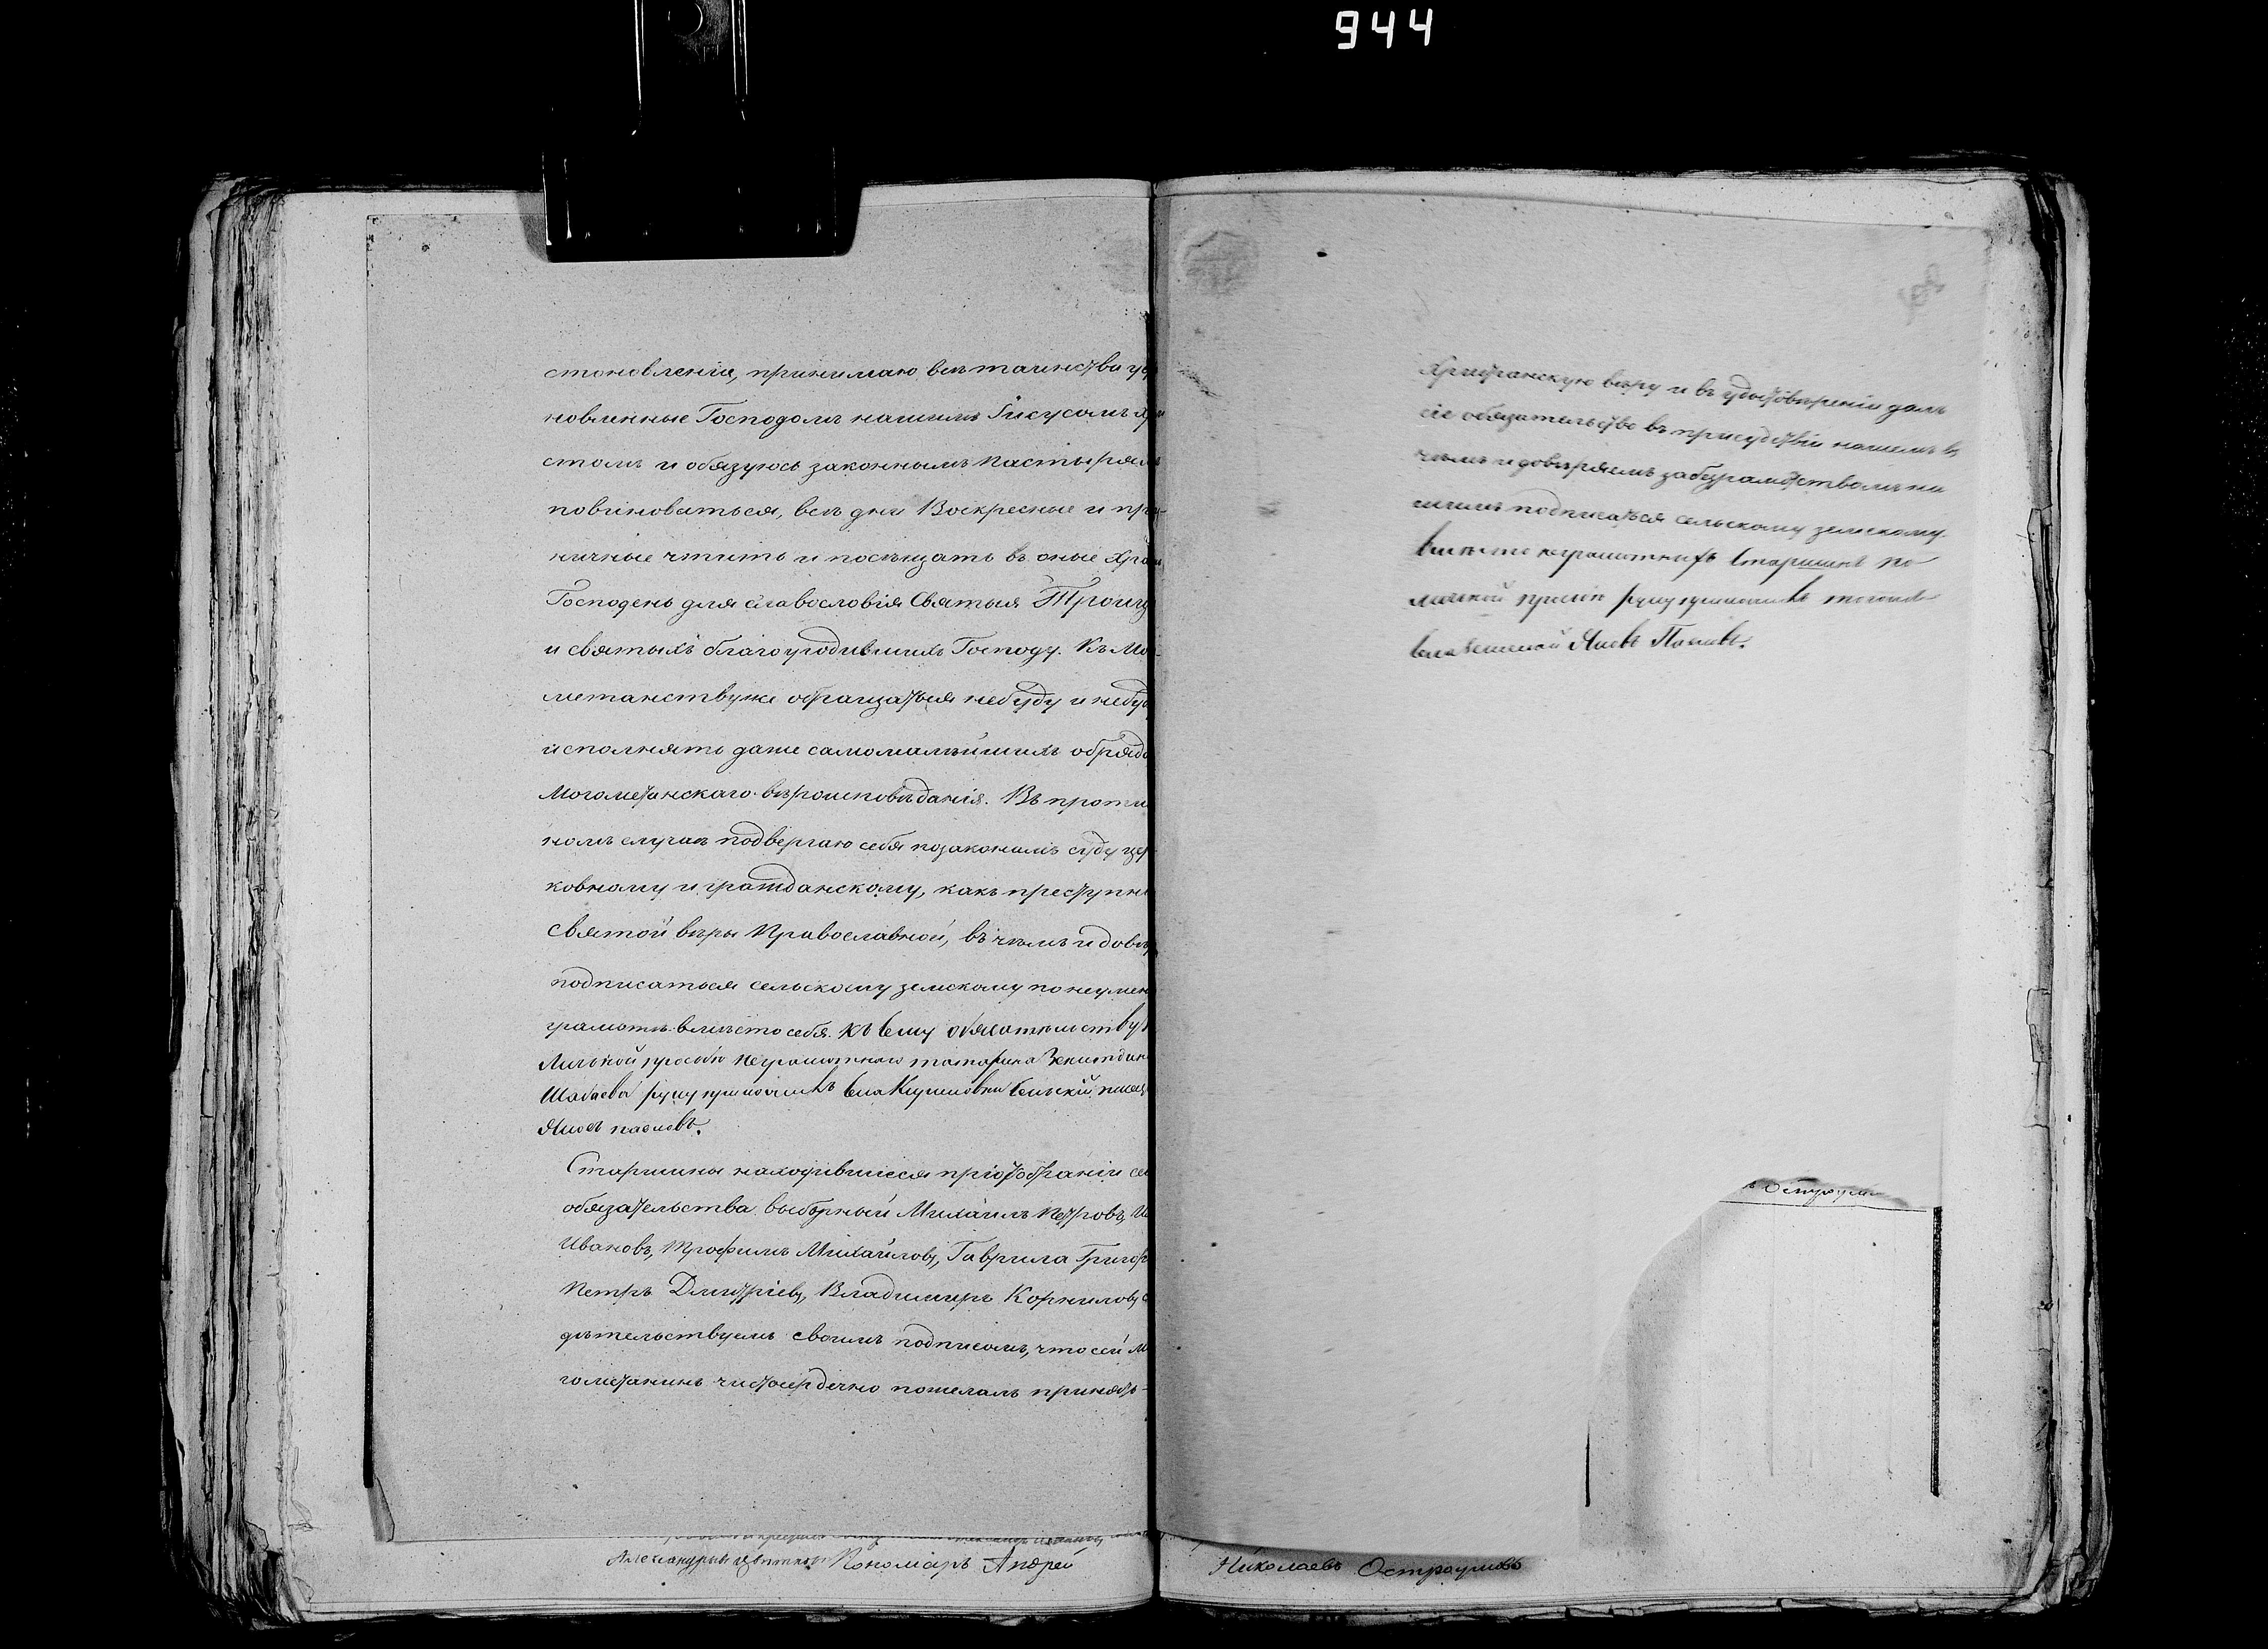 944
становленія, принимаю всѣ таинства у
новленные Господомъ нашимъ Іисусомъ Х
стомъ и обязуюсь законнымъ пастырямъ
повиноваться, всѣ дни Воскресные и пр
ничные чтить и посѣщать въ оные Храм
Господень для славословія Святыя Троиц
и святыхъ благоугодившихъ Господу. Къ Мо-
метанству же обращаться небуду и небуд
исполнять даже самомалѣйшихъ обрядо
Могометанскаго вѣроисповѣданія. Въ проти
номъ случаѣ подвергаю себя позаконамъ суду цер
ковному и гражданскому, какъ преступни
святой вѣры Православной, въ чемъ и довѣр
подписаться сельскому земскому по неумен
грамотѣ вмѣсто себя. Къ сему обязательству
личной прозбѣ неграмотнаго татарина
Шабаева руку приложилъ села сельскій писец
Яковъ Павловъ.
Старшины находившіеся при отобраніи се
обязательства выборный Михаилъ Петровъ, И
Ивановъ, Трофимъ Михайловъ, Гаврила Григор
Петръ Дмитріевъ, Владимиръ Корниловъ с
дѣтельствуемъ своимъ подписомъ, что сей М
гометанинъ чистосердечно пожелалъ принять
Пономарь Андрей
Христіанскую вѣру и въ удостовѣреніи далъ
сіе обязательство въ присудствіи нашемъ въ
чемъ и довѣряемъ забезграмотствомъ на
шимъ подписаться сельскому земскому.
вмѣсто неграмотныхъ Старшинъ по
личной прозбѣ руку приложилъ тогожъ
села Яковъ Павловъ.
Николаевъ Остроумовъ